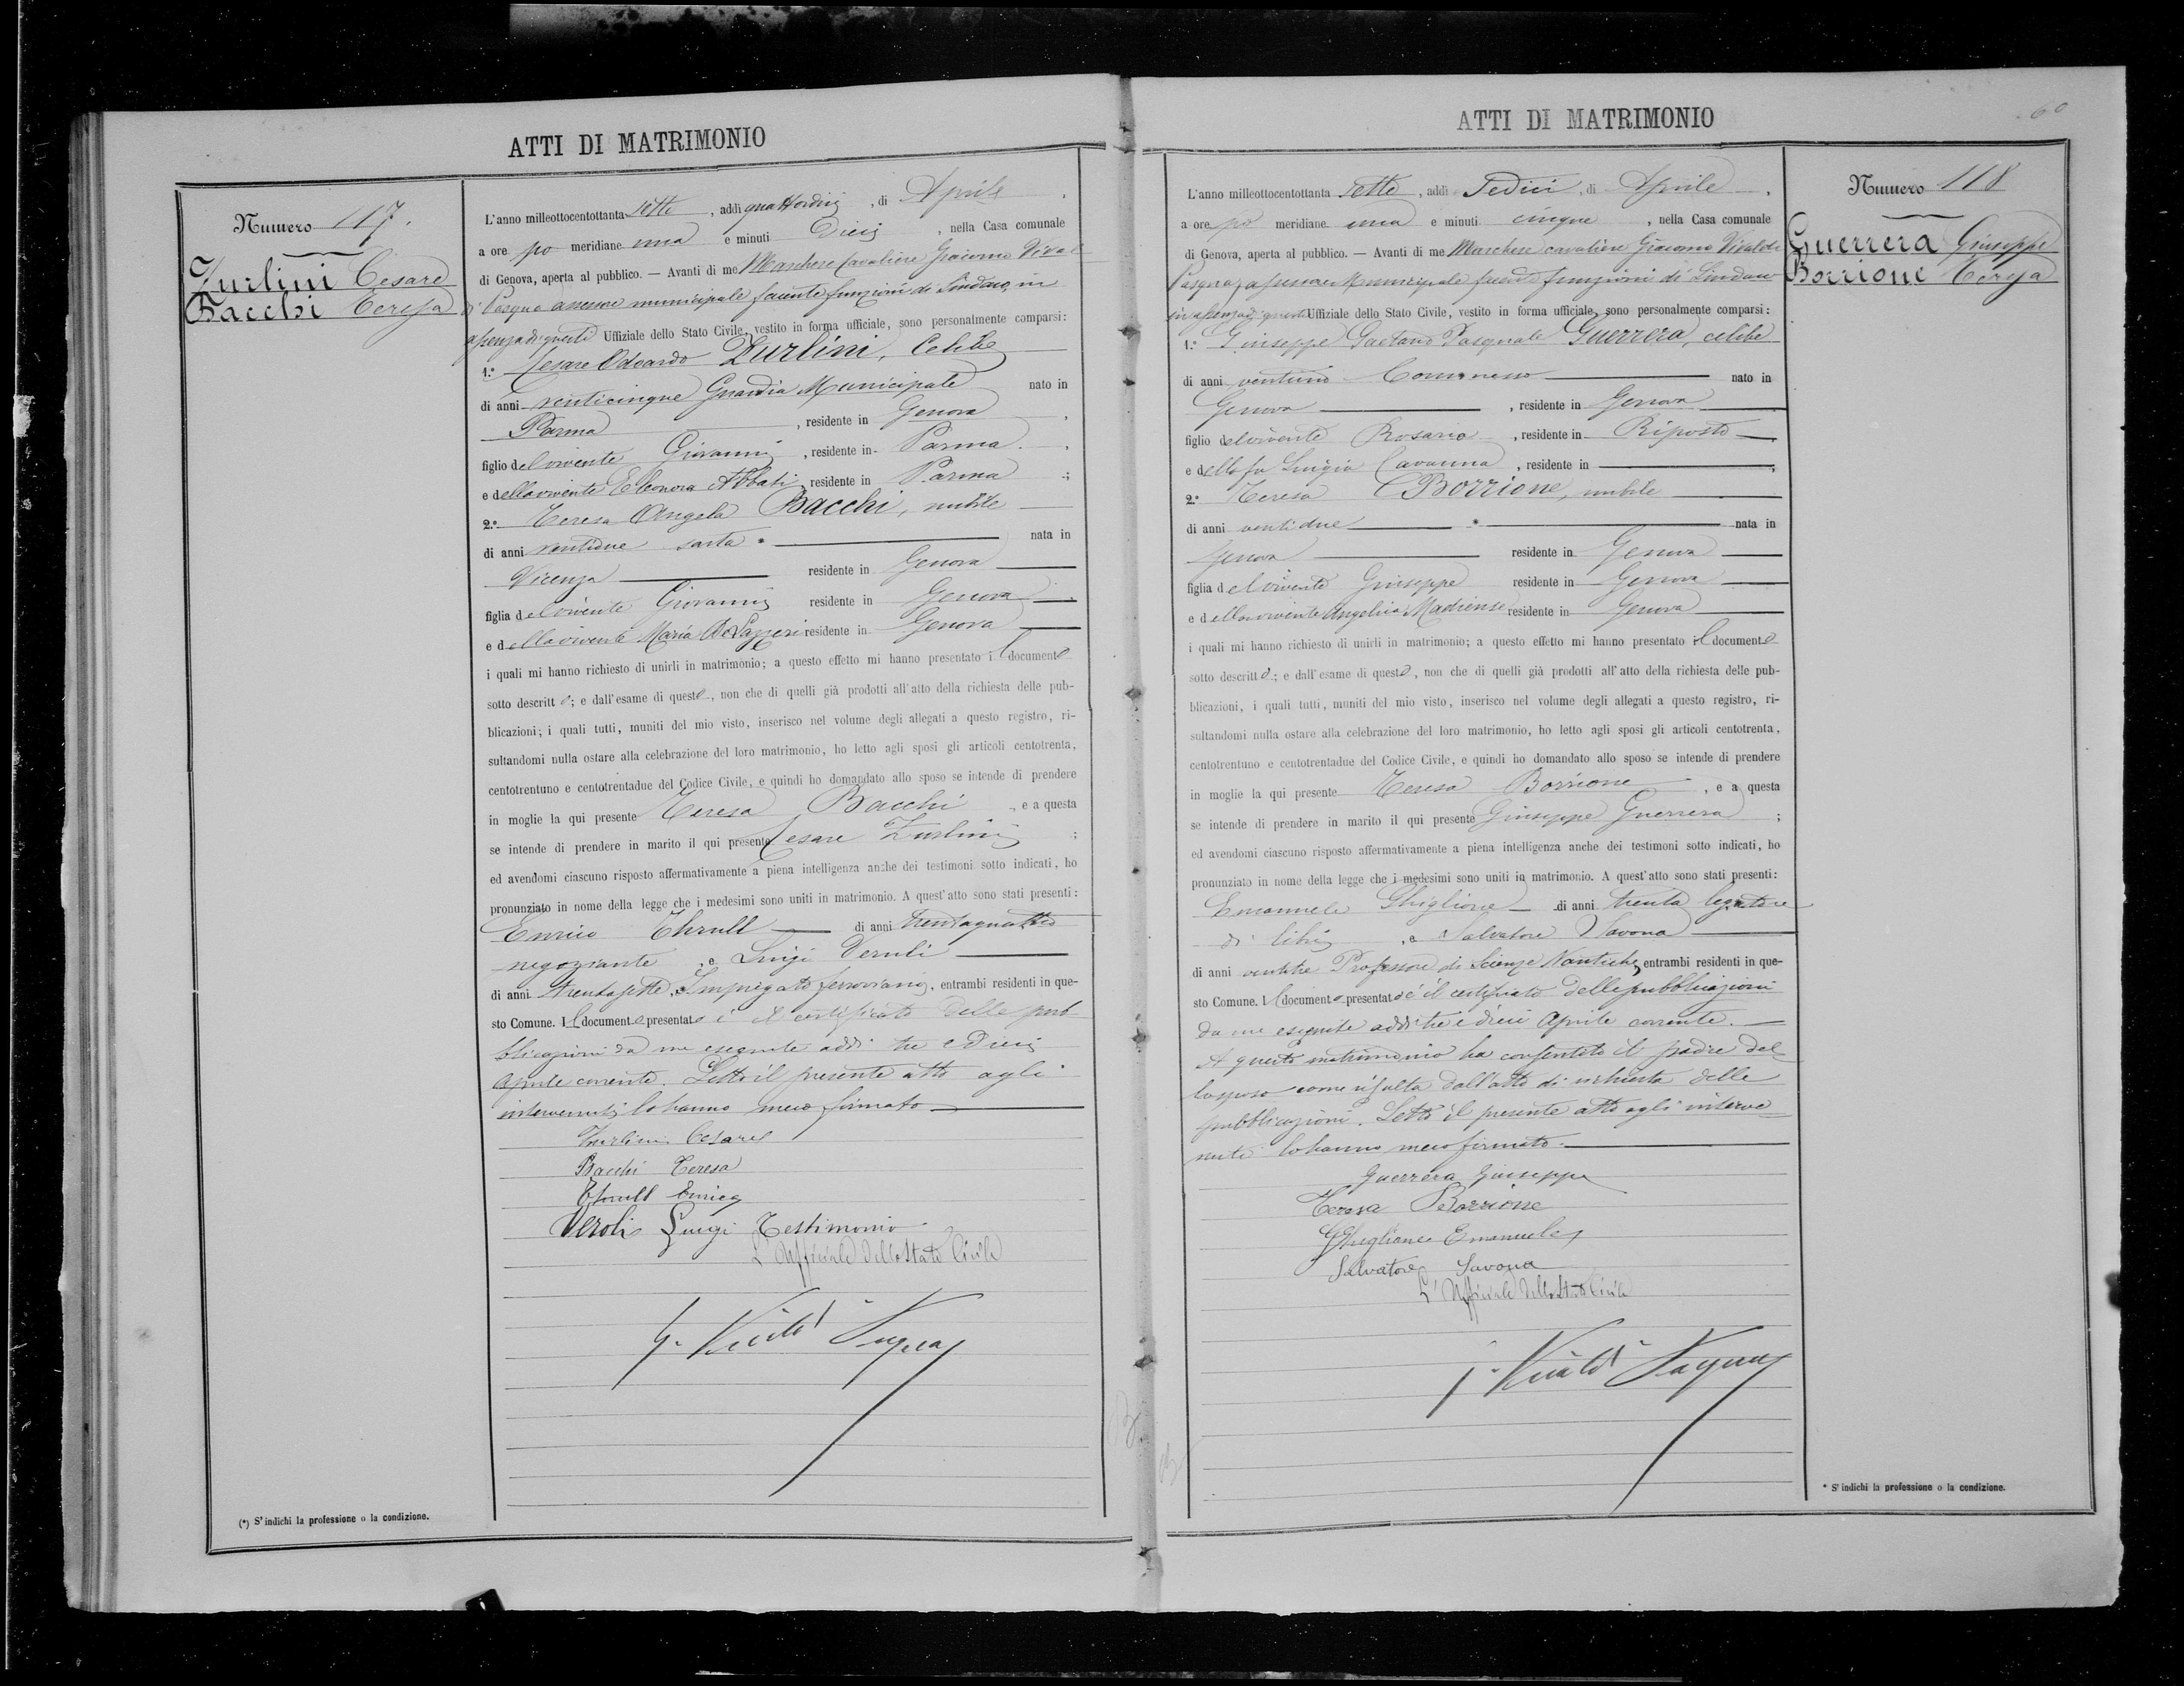 ATTI DI MATRIMONIO
Numero 117.
Zurlini Cesare
Bacchi Teresa
L'anno milleottocentottanta sette, addì quattordici, di Aprile,
a ore po meridiane una e minuti Dieci, nella Casa comunale
di Genova, aperta al pubblico. — Avanti di me Marchese Cavaliere Giacomo Vival
di Pasqua assessore municipale facente funzioni di Sindaco, in
assenza di questi Uffiziale dello Stato Civile, vestito in forma ufficiale, sono personalmente comparsi:
1.° Cesare Odoardo Zurlini, Celibe
di anni venticinque Guardia Municipale nato in
Parma, residente in Genova,
figlio del vivente Giovanni, residente in Parma,
e della vivente Eleonora Abbati, residente in Parma;
2.° Teresa Angela Bacchi, nubile
di anni ventidue sarta * nata in
Vicenza residente in Genova
figlia del vivente Giovanni residente in Genova
e della vivente Maria De Lazzeri residente in Genova
i quali mi hanno richiesto di unirli in matrimonio; a questo effetto mi hanno presentato il documento
sotto descritto; e dall'esame di questo, non che di quelli già prodotti all'atto della richiesta delle pub-
blicazioni; i quali tutti, muniti del mio visto, inserisco nel volume degli allegati a questo registro, ri-
sultandomi nulla ostare alla celebrazione del loro matrimonio, ho letto agli sposi gli articoli centotrenta,
centotrentuno e centotrentadue del Codice Civile, e quindi ho domandato allo sposo se intende di prendere
in moglie la qui presente Teresa Bacchi, e a questa
se intende di prendere in marito il qui presente Cesare Zurlini;
ed avendomi ciascuno risposto affermativamente a piena intelligenza anche dei testimoni sotto indicati, ho
pronunziato in nome della legge che i medesimi sono uniti in matrimonio. A quest'atto sono stati presenti:
Enrico Ehrull di anni trentaquattro
negoziante, e Luigi Veruli
di anni trentasette, Impiegato ferroviario, entrambi residenti in que-
sto Comune. Il documento presentato è il certificato delle pub-
blicazioni da me eseguite addì tre e Dieci
Aprile corrente. Letto il presente atto agli
intervenuti lo hanno meco firmato
Zurlini Cesare
Bacchi Teresa
Ehrull Enrico
Veroli Luigi Testimonio
L'Uffiziale dello Stato Civile
G. Vivaldi Pasqua
(*) S'indichi la professione o la condizione.
ATTI DI MATRIMONIO
60
Numero 118
Guerrera Giuseppe
Borrione Teresa
L'anno milleottocentottanta Sette, addì Sedici, di Aprile,
a ore po meridiane una e minuti cinque, nella Casa comunale
di Genova, aperta al pubblico. — Avanti di me Marchese cavaliere Giacomo Vivaldi
Pasqua, assessore Municipale facente funzioni di Sindaco
in assenza di questi Uffiziale dello Stato Civile, vestito in forma ufficiale, sono personalmente comparsi:
1.° Giuseppe Gaetano Pasquale Guerrera, celibe
di anni ventuno Commesso nato in
Genova, residente in Genova
figlio del vivente Rosario, residente in Riposto
e della fu Luigia Cavanna, residente in ;
2.° Teresa Borrione, nubile
di anni ventidue * nata in
Genova residente in Genova
figlia del vivente Giuseppe residente in Genova
e della vivente Angelica Madrense residente in Genova
i quali mi hanno richiesto di unirli in matrimonio; a questo effetto mi hanno presentato il documento
sotto descritto; e dall'esame di questo, non che di quelli già prodotti all'atto della richiesta delle pub-
blicazioni, i quali tutti, muniti del mio visto, inserisco nel volume degli allegati a questo registro, ri-
sultandomi nulla ostare alla celebrazione del loro matrimonio, ho letto agli sposi gli articoli centotrenta,
centotrentuno e centotrentadue del Codice Civile, e quindi ho domandato allo sposo se intende di prendere
in moglie la qui presente Teresa Borrione, e a questa
se intende di prendere in marito il qui presente Giuseppe Guerrera;
ed avendomi ciascuno risposto affermativamente a piena intelligenza anche dei testimoni sotto indicati, ho
pronunziato in nome della legge che i medesimi sono uniti in matrimonio. A quest'atto sono stati presenti:
Emanuele Ghiglione di anni trenta legatore
di libri, e Salvatore Savona
di anni ventitre Professore di Scienze Nautiche, entrambi residenti in que-
sto Comune. Il documento presentato è il certificato delle pubblicazioni
da me eseguite addì tre e dieci Aprile corrente.
A questo matrimonio ha consentito il padre del
lo sposo come risulta dall'atto di richiesta delle
pubblicazioni. Letto il presente atto agli interve
nuti lo hanno meco firmato.
Guerrera Giuseppe
Teresa Borrione
Ghiglione Emanuele
Salvatore Savona
L'Uffiziale dello Stato Civile
G. Vivaldi Pasqua
* S'indichi la professione o la condizione.